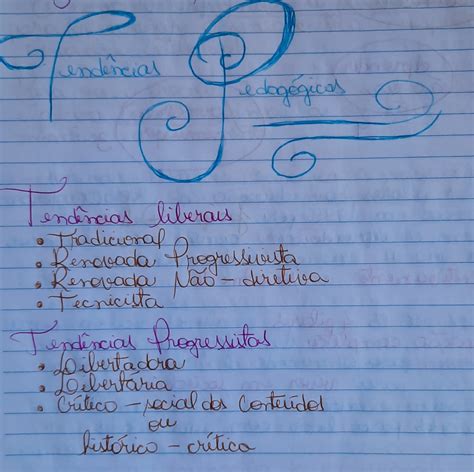 Tendências
Pedagógicas
Tendências liberais
• Tradicional
• Renovada Progressivista
• Renovada Não-diretiva
• Tecnicista
Tendências Progressistas
• Libertadora
• Libertária
• Crítico-social dos Conteúdos
ou
histórico-crítica